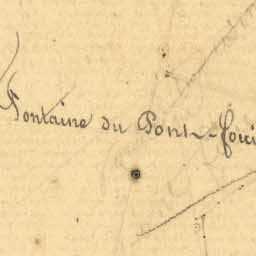 Fontaine du Pont-